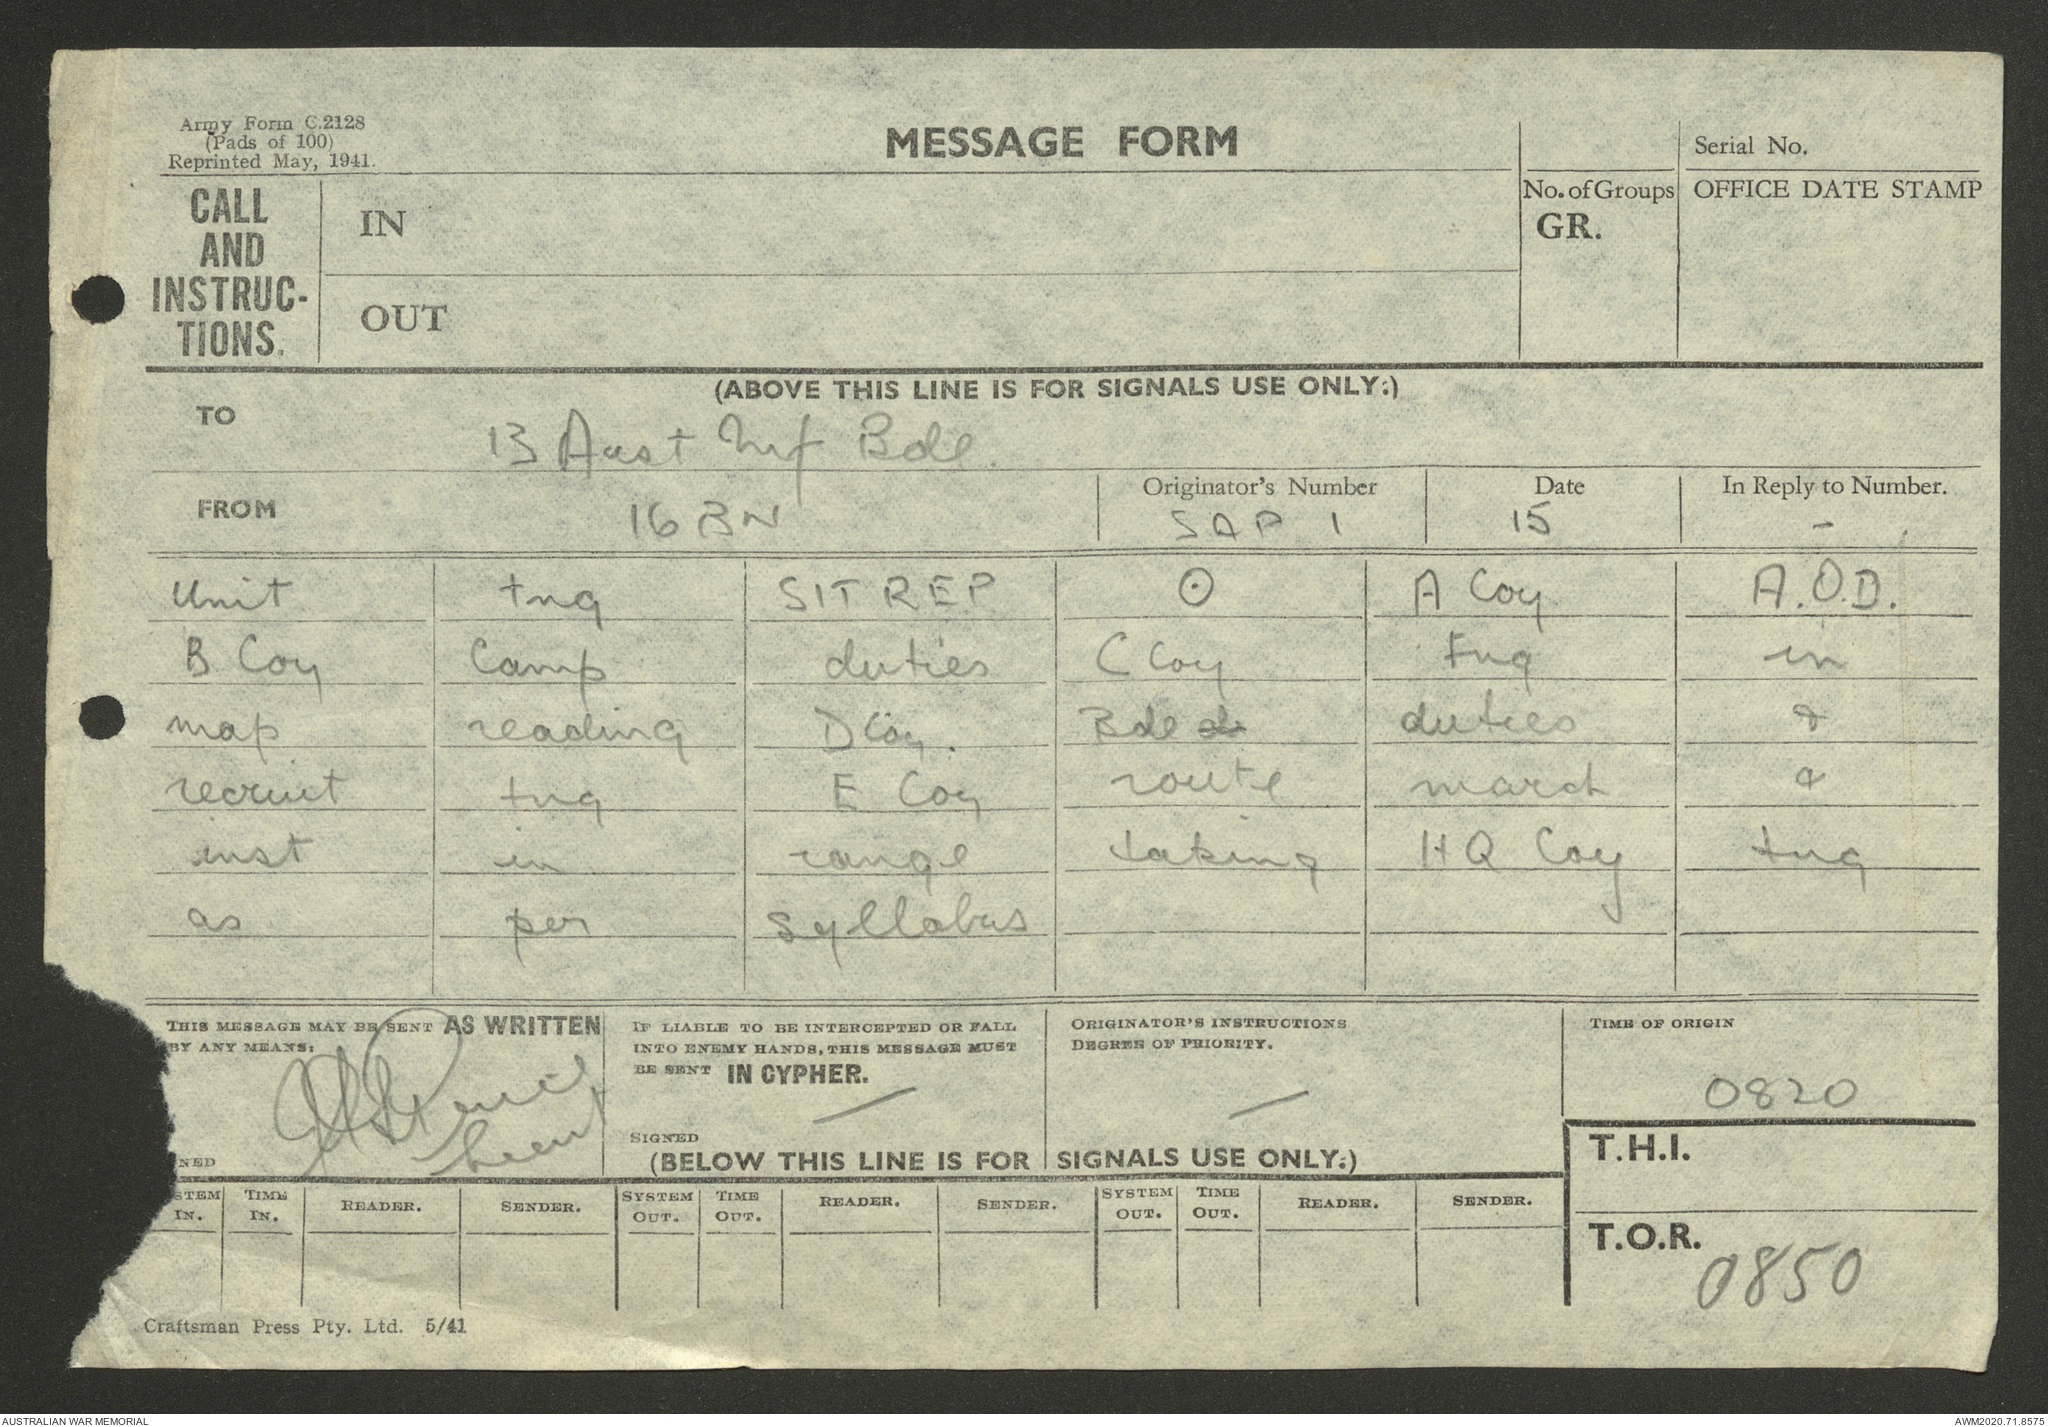 Army Form C.2128
(Pads of 100)
Reprinted May, 1941.
MESSAGE FORM
Serial No.
CALL
AND
INSTRUC-
TIONS.
IN
OUT
No. of Groups
GR.
OFFICE DATE STAMP
(ABOVE THIS LINE IS FOR SIGNALS USE ONLY.)
TO 13 Aust Inf Bde.
FROM 16 BN
Originator's Number SAP 1
Date 15
In Reply to Number. -
Unit tng SITREP ⊙ A Coy A.O.D.
B Coy Camp duties C Coy tng in
map reading D Coy. Bde duties &
recruit tng E Coy route march &
inst in range taking HQ Coy tng
as per syllabus
THIS MESSAGE MAY BE SENT AS WRITTEN
BY ANY MEANS:
Lieut
NED
IF LIABLE TO BE INTERCEPTED OR FALL
INTO ENEMY HANDS, THIS MESSAGE MUST
BE SENT IN CYPHER.
—
SIGNED
ORIGINATOR'S INSTRUCTIONS
DEGREE OF PRIORITY.
—
TIME OF ORIGIN
0820
(BELOW THIS LINE IS FOR SIGNALS USE ONLY.)
T.H.I.
T.O.R. 0850
STEM IN. TIME IN. READER. SENDER. SYSTEM OUT. TIME OUT. READER. SENDER. SYSTEM OUT. TIME OUT. READER. SENDER.
Craftsman Press Pty. Ltd. 5/41
AUSTRALIAN WAR MEMORIAL
AWM2020.71.8575